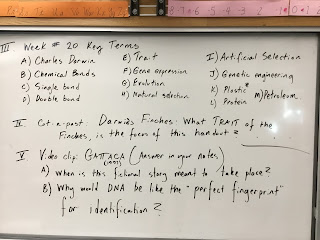 III Week # 20 Key Terms
A) Charles Darwin
B) Chemical Bonds
C) Single bond
D) Double bond
E) Trait
F) Gene expression
G) Evolution
H) Natural selection
I) Artificial Selection
J) Genetic engineering
K) Plastic*
L) Protein
M) Petroleum
IV Cut-n-past: Darwin's Finches: What TRAIT of the
Finches, is the focus of this handout?
V Video clip: GATTACA (1997) (Answer in your notes)
A) When is this fictional story meant to take place?
B) Why would DNA be like the "perfect fingerprint"
for identification?